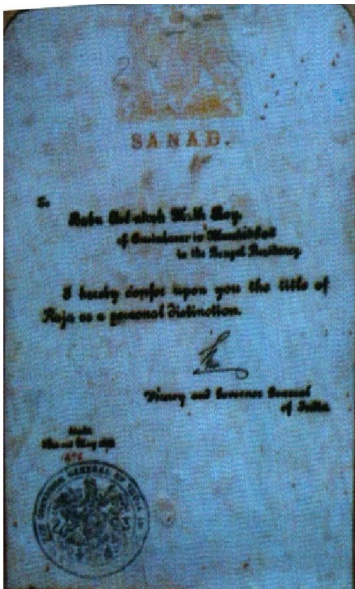 SANAD.
To
Babu Ashutosh Nath Roy,
of Cossimbazar in Murshidabad
in the Bengal Presidency.
I hereby confer upon you the title of
Raja as a personal distinction.
Viceroy and Governor General
of India
Simla
May
GOVERNOR GENERAL OF INDIA IN